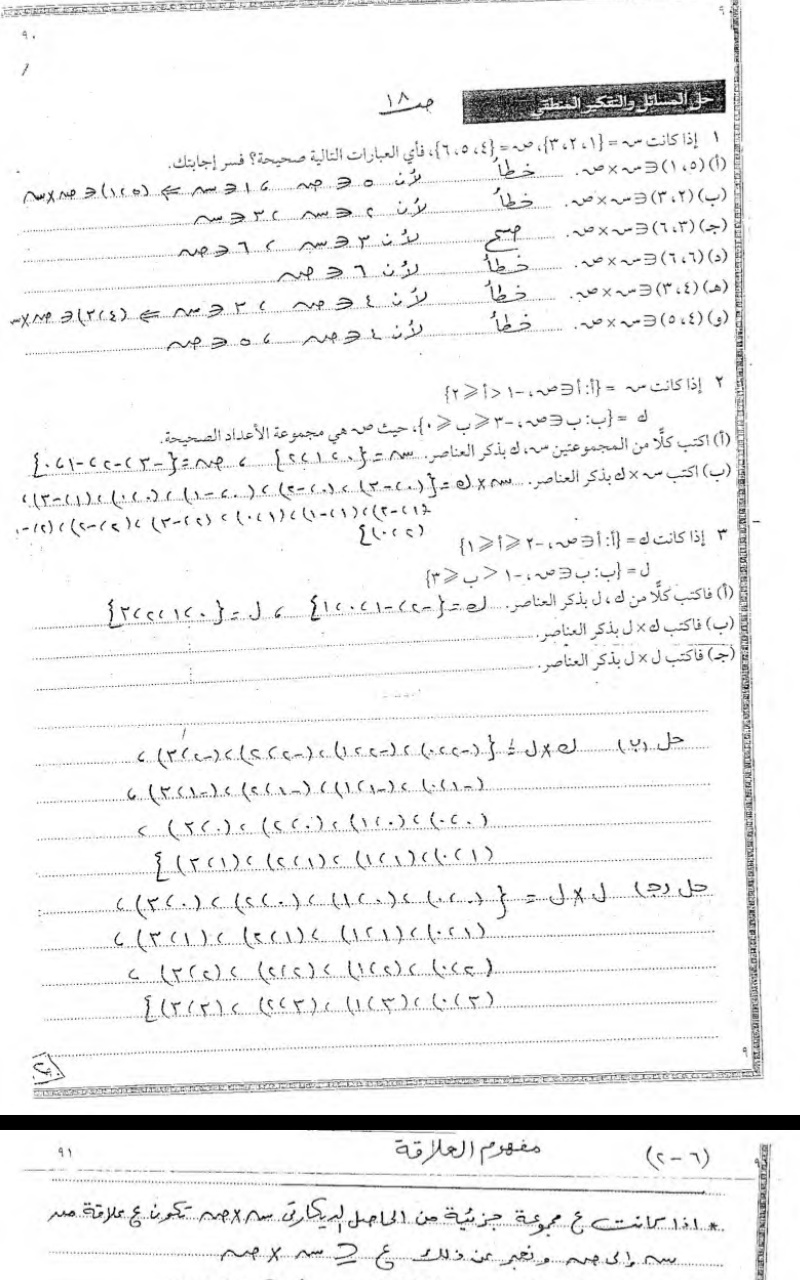 ٩٠
حل المسائل والتفكير المنطقي صـ ١٨
١ إذا كانت س = {١، ٢، ٣}، ص = {٤، ٥، ٦}، فأي العبارات التالية صحيحة؟ فسر إجابتك.
(أ) (٥، ١) ∈ س × ص. خطأ لأن ٥ ∈ ص، ١ ∈ س ⇐ (٥، ١) ∈ ص × س
(ب) (٢، ٣) ∈ س × ص. خطأ لأن ٢ ∈ س، ٣ ∈ س
(جـ) (٣، ٦) ∈ س × ص. صح لأن ٣ ∈ س، ٦ ∈ ص
(د) (٦، ٦) ∈ س × ص. خطأ لأن ٦ ∈ ص
(هـ) (٤، ٣) ∈ س × ص. خطأ لأن ٤ ∈ ص، ٣ ∈ س ⇐ (٤، ٣) ∈ ص × س
(و) (٤، ٥) ∈ س × ص. خطأ لأن ٤ ∈ ص، ٥ ∈ ص
٢ إذا كانت س = {أ: أ ∈ ص، -١ < أ ≤ ٢}
ك = {ب: ب ∈ ص، -٣ ≤ ب ≤ ٠}، حيث ص هي مجموعة الأعداد الصحيحة.
(أ) اكتب كلًّا من المجموعتين س، ك بذكر العناصر. س = {٠، ١، ٢}، ص = {-٣، -٢، -١، ٠}
(ب) اكتب س × ك بذكر العناصر. س × ك = {(٠، -٣)، (٠، -٢)، (٠، -١)، (٠، ٠)، (١، -٣)،
(١، -٢)، (١، -١)، (١، ٠)، (٢، -٣)، (٢، -٢)، (٢، -١)،
(٢، ٠)}
٣ إذا كانت ك = {أ: أ ∈ ص، -٢ ≤ أ ≤ ١}
ل = {ب: ب ∈ ص، -١ < ب ≤ ٣}
(أ) فاكتب كلًّا من ك، ل بذكر العناصر. ك = {-٢، -١، ٠، ١}، ل = {٠، ١، ٢، ٣}
(ب) فاكتب ك × ل بذكر العناصر.
(جـ) فاكتب ل × ل بذكر العناصر.
حل (ب) ك × ل = {(-٢، ٠)، (-٢، ١)، (-٢، ٢)، (-٢، ٣)،
(-١، ٠)، (-١، ١)، (-١، ٢)، (-١، ٣)،
(٠، ٠)، (٠، ١)، (٠، ٢)، (٠، ٣)،
(١، ٠)، (١، ١)، (١، ٢)، (١، ٣)}
حل (جـ) ل × ل = {(٠، ٠)، (٠، ١)، (٠، ٢)، (٠، ٣)،
(١، ٠)، (١، ١)، (١، ٢)، (١، ٣)،
(٢، ٠)، (٢، ١)، (٢، ٢)، (٢، ٣)،
(٣، ٠)، (٣، ١)، (٣، ٢)، (٣، ٣)}
(٦-٢) مفهوم العلاقة ٩١
* اذا كانت ع مجموعة جزئية من الحاصل الديكارتى س × ص تكون ع علاقة من
س إلى ص ونعبر عن ذلك ع ⊆ س × ص